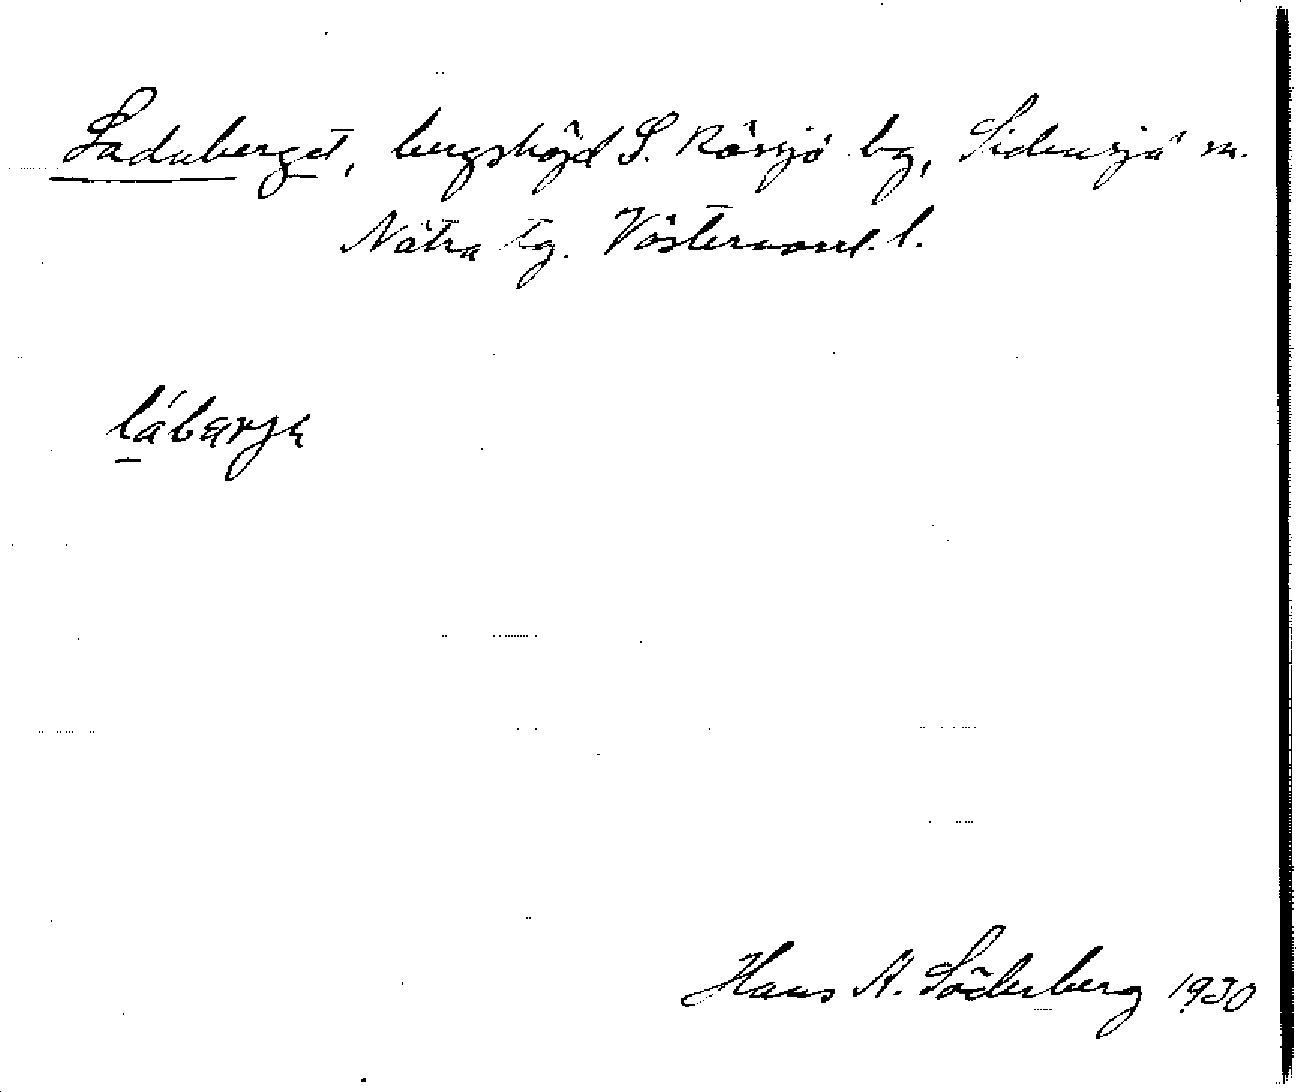 Laduberget, bergshöjd S. Rösjö by, Sidensjö sn.
Nätra tg. Västernorrl. l.
låbærjɛ
Hans A. Söderberg 1930